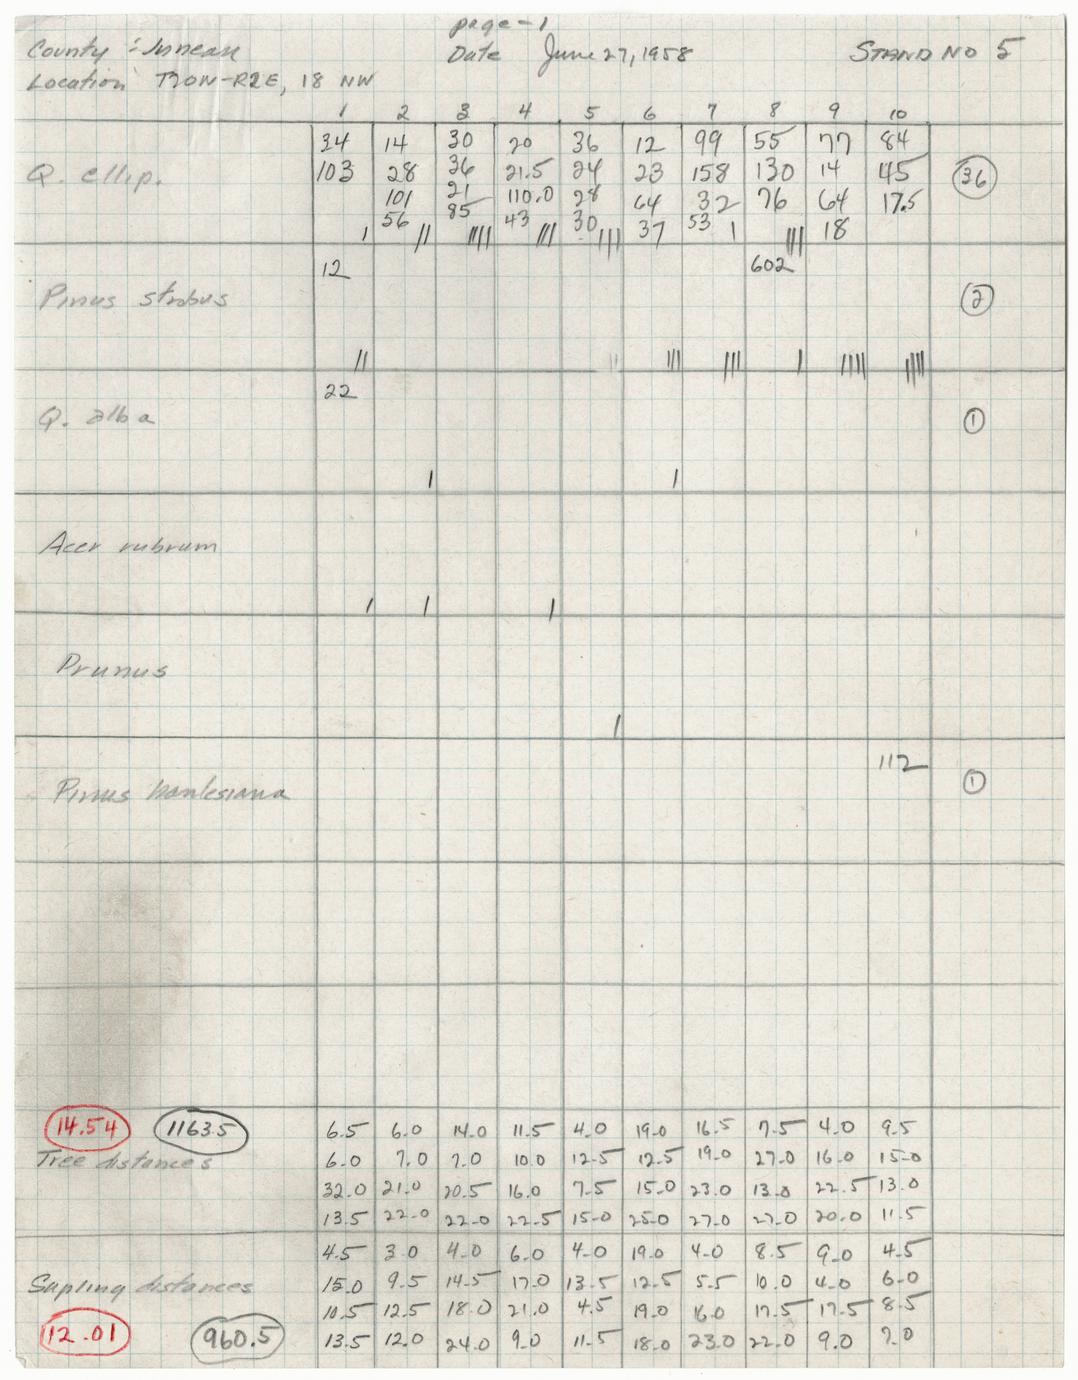 page-1
County : Juneau Date June 27, 1958 STAND NO 5
Location T20N-R2E, 18 NW
1 2 3 4 5 6 7 8 9 10
34 14 30 20 36 12 99 55 77 84
Q. ellip. 103 28 36 21.5 24 23 158 130 14 45 36
101 21 110.0 28 64 32 76 64 17.5
56 85 43 30 37 53 18
| || |||| ||| ||| | |||
12 602
Pinus strobus 2
|| ||| ||| | |||| ||||
22
Q. alba 1
| |
Acer rubrum
| | |
Prunus
|
112
Pinus banksiana 1
14.54 1163.5 6.5 6.0 14.0 11.5 4.0 19.0 16.5 7.5 4.0 9.5
Tree distances 6.0 7.0 7.0 10.0 12.5 12.5 19.0 27.0 16.0 15.0
32.0 21.0 20.5 16.0 7.5 15.0 23.0 13.0 22.5 13.0
13.5 22.0 22.0 22.5 15.0 25.0 27.0 27.0 20.0 11.5
4.5 3.0 4.0 6.0 4.0 19.0 4.0 8.5 9.0 4.5
Sapling distances 15.0 9.5 14.5 17.0 13.5 12.5 5.5 10.0 4.0 6.0
10.5 12.5 18.0 21.0 4.5 19.0 16.0 17.5 17.5 8.5
12.01 960.5 13.5 12.0 24.0 9.0 11.5 18.0 23.0 22.0 9.0 7.0